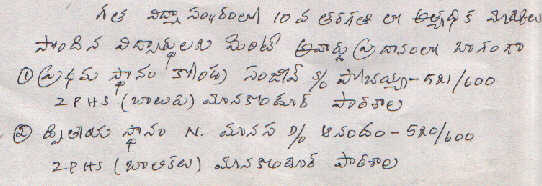 గత విద్యా సంవత్సరంలో 10వ తరగతి లో అత్యధిక మార్కులు
పొందిన విద్యార్థులకు మెరిట్ అవార్డు ప్రదానంలో భాగంగా
① ప్రథమ స్థానం కోండ్ర సంజీవ్ S/o పోచయ్య - 521/600
ZPHS (బాలురు) మానకొండూర్ పాఠశాల
② ద్వితీయ స్థానం N. మానస D/o ఆనందం - 520/600
Z-PHS (బాలికలు) మానకొండూర్ పాఠశాల